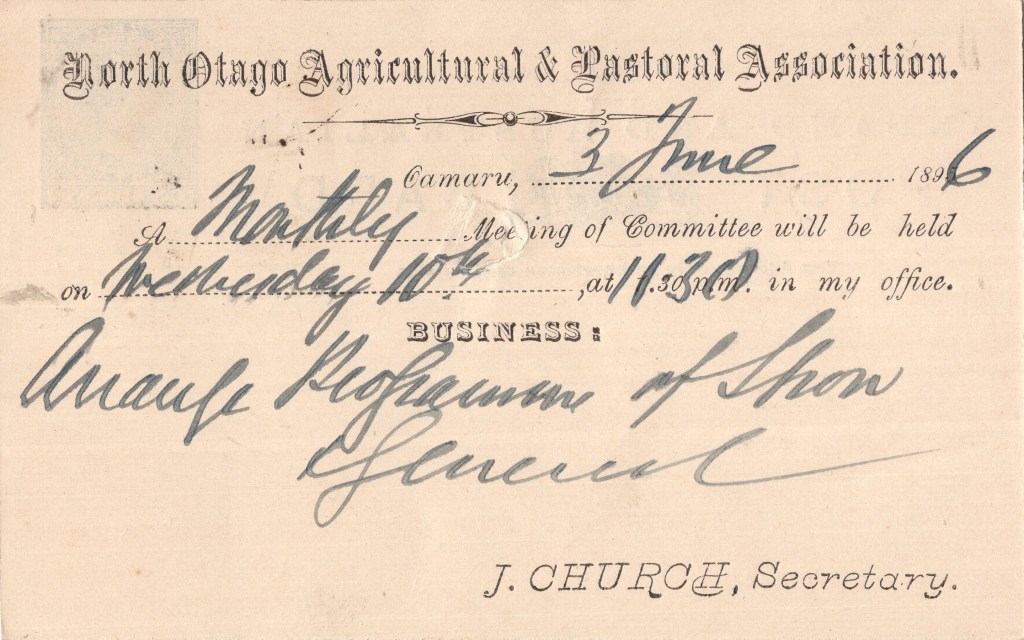 North Otago Agricultural & Pastoral Association.
Oamaru, 3 June 1896
A Monthly Meeting of Committee will be held
on Wednesday 10th, at 11.30 in my office.
BUSINESS:
Arrange Programme of Show
General
J. CHURCH, Secretary.